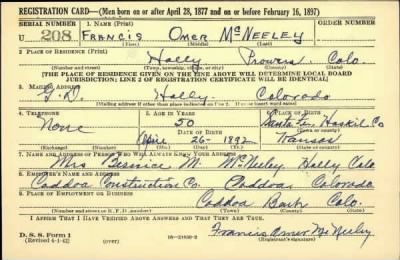 REGISTRATION CARD—(Men born on or after April 28, 1877 and on or before February 16, 1897)
SERIAL NUMBER 1. NAME (Print) ORDER NUMBER
U 208 FRANCIS OMER McNEELEY
(First) (Middle) (Last)
2. PLACE OF RESIDENCE (Print)
Holly Prowers Colo.
(Number and street) (Town, township, village, or city) (County) (State)
[THE PLACE OF RESIDENCE GIVEN ON THE LINE ABOVE WILL DETERMINE LOCAL BOARD
JURISDICTION; LINE 2 OF REGISTRATION CERTIFICATE WILL BE IDENTICAL]
3. MAILING ADDRESS
G.D. Holly Colorado
[Mailing address if other than place indicated on line 2. If same insert word same]
4. TELEPHONE 5. AGE IN YEARS 6. PLACE OF BIRTH
None 50 Haskil Co
DATE OF BIRTH
26- 1892 Kansas
(Exchange) (Number) (Mo.) (Day) (Yr.) (State or country)
7. NAME AND ADDRESS OF PERSON WHO WILL ALWAYS KNOW YOUR ADDRESS
Mrs Bernice M. McNeeley Holly Colo
8. EMPLOYER'S NAME AND ADDRESS
Caddoa Construction Co. Caddoa, Colorado
9. PLACE OF EMPLOYMENT OR BUSINESS
Caddoa Colo.
(Number and street or R. F. D. number) (Town) (County) (State)
I AFFIRM THAT I HAVE VERIFIED ABOVE ANSWERS AND THAT THEY ARE TRUE.
D. S. S. Form 1
(Revised 4-1-42) (over) Francis Omer McNeeley
(Registrant's signature)